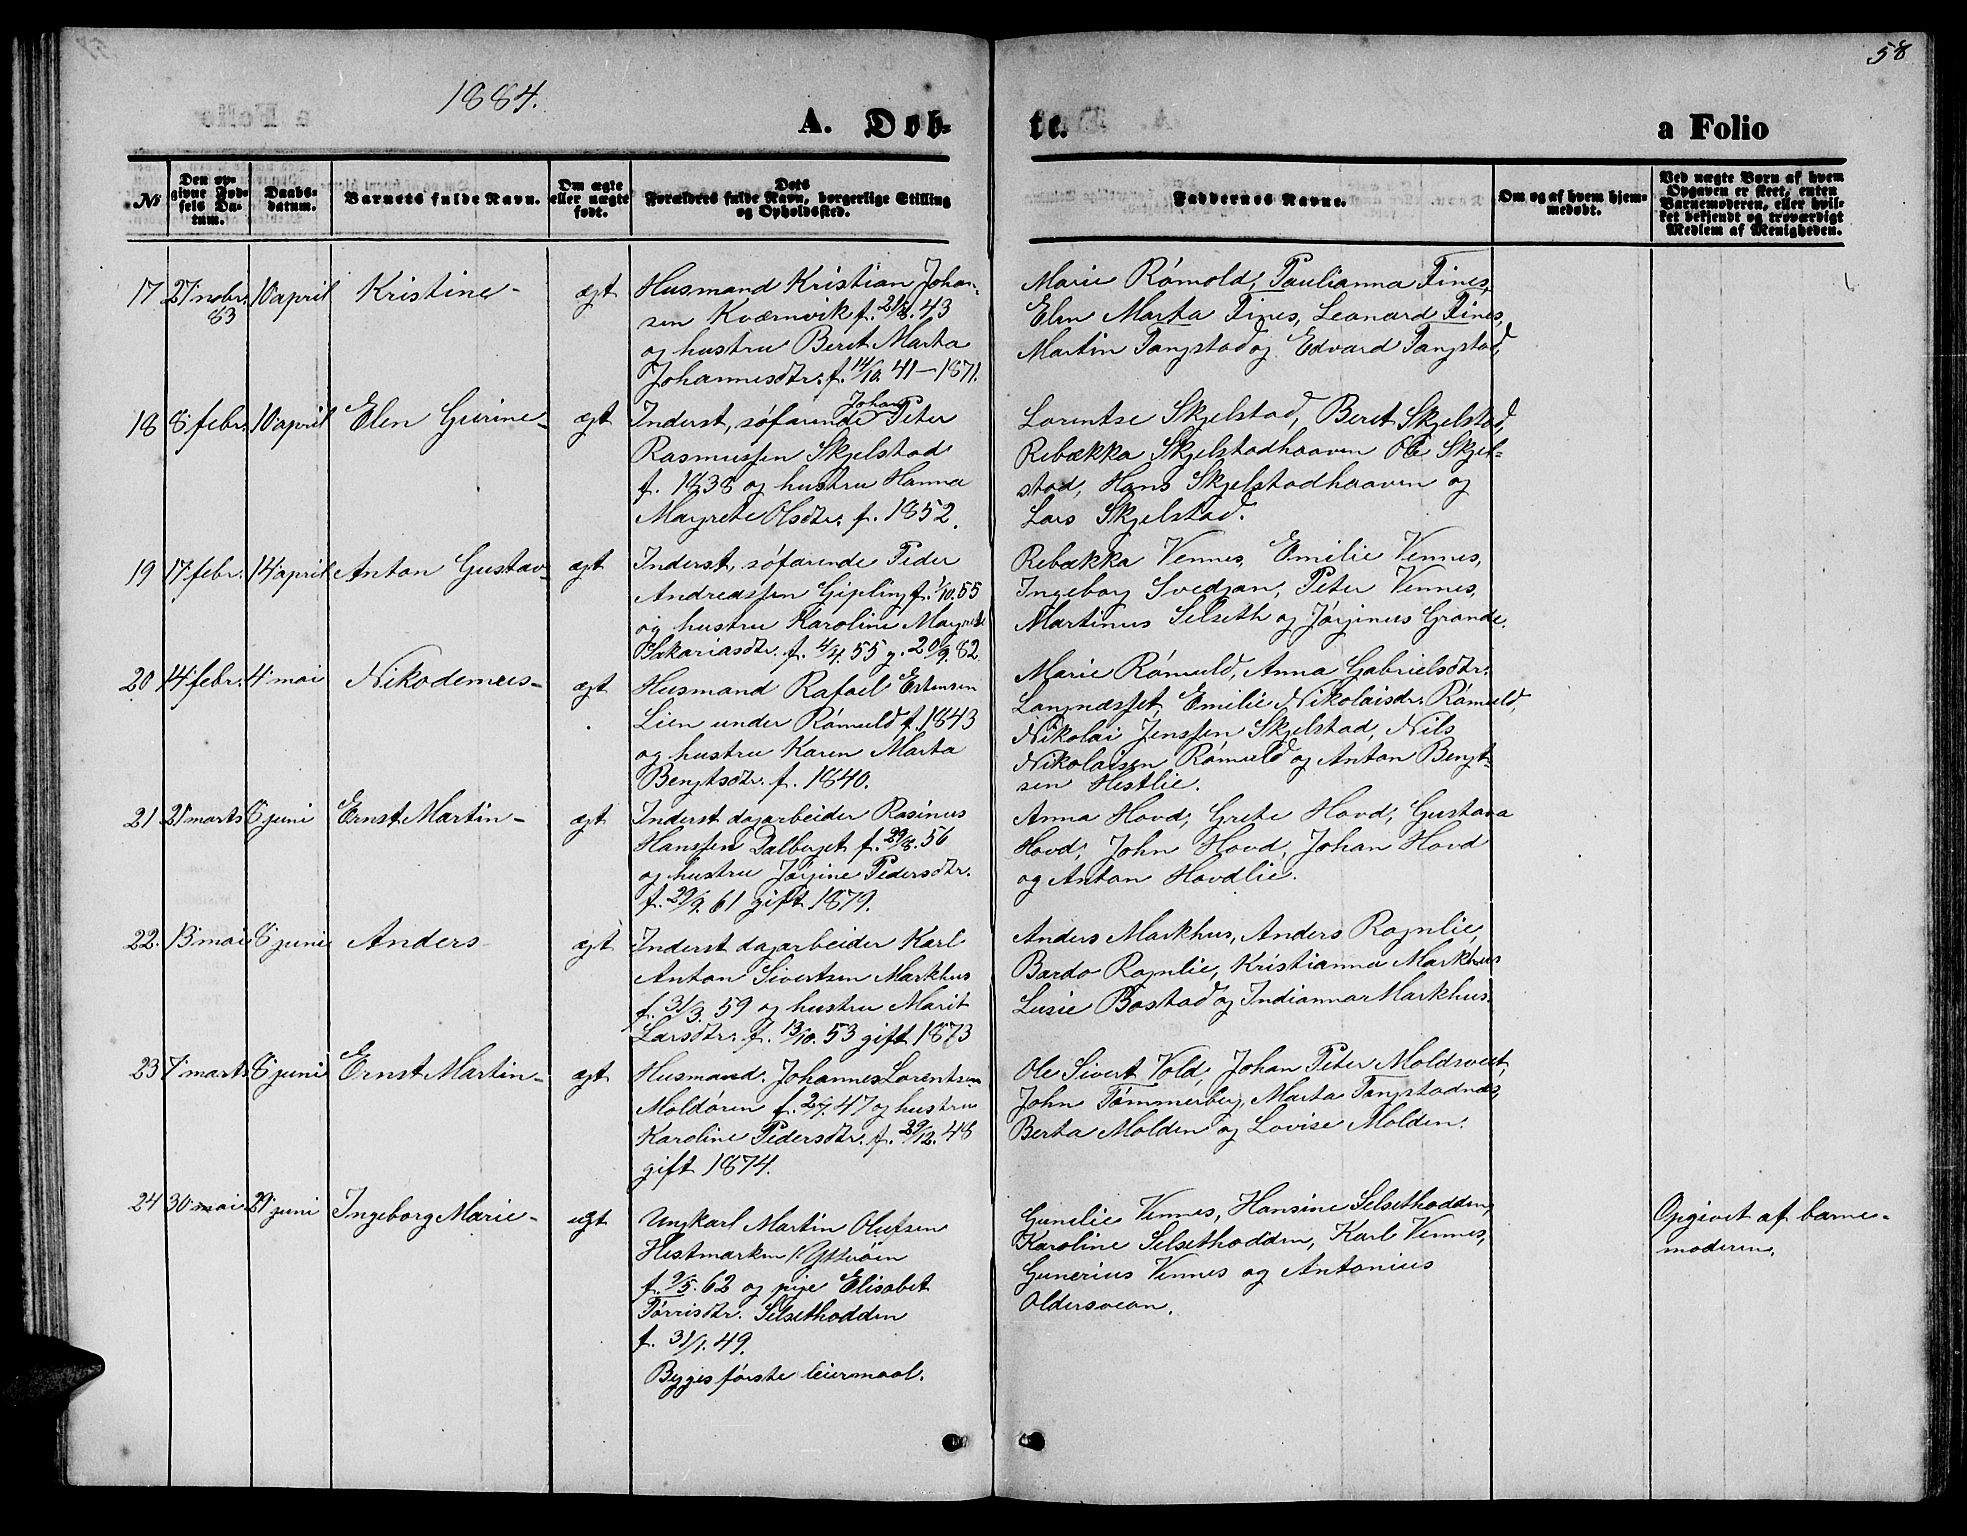 58
1884.
A. Døb-
te.
a Folio
No
Den op-
givne Fød-
sels Da-
tum.
Daabs-
datum.
Barnets fulde Navn.
Om ægte
eller uægte
født.
Dets
Forældres fulde Navn, borgerlige Stilling
og Opholdssted.
Faddernes Navne.
Om og af hvem hjem-
medøbt.
Ved uægte Børn af hvem
Opgaven er skeet, enten
Barnemoderen, eller hvil-
ket bekjendt og troværdigt
Medlem af Menigheden.
17 27 novbr. 83 10 april Kristine- ægt
Husmand Kristian Johan-
sen Kværnvik f. 21/8.43
og hustru Beret Marta
Johannesdtr. f. 14/10.41-1871.
Marie Rómold, Paulianna Fines,
Elen Marta Fines, Leonard Fines,
Martin Tangstad og Edvard Tangstad,
18 8 febr. 10 april Elen Gurine- ægt
Inderst, søfarende Johan Peter
Rasmussen Skjelstad
f. 1838 og hustru Hanna
Magrete Olsdtr. f. 1852.
Lorentse Skjelstad, Beret Skjelstad,
Rebækka Skjelstadhaaven Ole Skjel-
stad, Hans Skjelstadhaaven og
Lars Skjelstad.
19 17 febr. 14 april Anton Gustav- ægt
Inderst, søfarende Peder
Andreassen Gipling f. 1/10.55
og hustru Karoline Magrete
Sakariasdtr. f. 4/4.55 g. 20/9.82
Rebækka Vennes, Emilie Vennes,
Ingeborg Svedjan, Peter Vennes,
Martinus Selseth og Jørginus Grande.
20 14 febr. 4 mai Nikodemus- ægt
Husmand Rafael Estensen
Lien under Rómuld f. 1843
og hustru Karen Marta
Bengtsdtr. f. 1840.
Marie Rómuld, Anna Gabrielsdtr.
Langnæsset, Emilie Nikolaisdr. Rómuld,
Nikolai Jenssen Skjelstad, Nils
Nikolaisen Rómuld og Anton Bengt-
sen Hestlie.
21 21 marts 8 juni Ernst Martin- ægt
Inderst dagarbeider Rasinus
Hanssen Dalberget f. 29/8.56
og hustru Jørgine Pedersdtr.
f. 29/9.61 gift 1879.
Anna Hovd, Grete Hovd, Gustava
Hovd, John Hovd, Johan Hovd
og Anton Hovdlie.
22. 13 mai 8 juni Anders ægt
Inderst dagarbeider Karl
Anton Sivertsen Markhus
f. 31/3.59 og hustru Marit
Larsdtr. f. 13/10.53 gift 1873
Anders Markhus, Anders Rognlie,
Bardo Rognlie, Kristianna Markhus
Lusie Bostad og Indianna Markhus.
23 7 marts 8 juni Ernst Martin- ægt
Husmand. Johannes Lorentsen
Moldóren f. 2/7.47 og hustru
Karoline Pedersdtr. f. 29/12.48
gift 1874.
Ole Sivert Vold, Johan Peter Moldsvert,
John Tómmerberg, Marta Tangstadnæs,
Berta Molden og Lovise Molden.
24 30 mai 29 juni Ingeborg Marie- uægt
Ungkarl Martin Olufsen
Hestmarken Ytterøen
f. 9/5.62 og pige Elisabet
Tórrisdtr. Selsethodden
f. 31/1.49.
Begges fórste leiermaal.
Gunelie Vennes, Hansine Selsethodden,
Karoline Selsethodden, Karl Vennes,
Gunerius Vennes og Antonius
Oldersvean.
Opgivet af barne-
moderen.